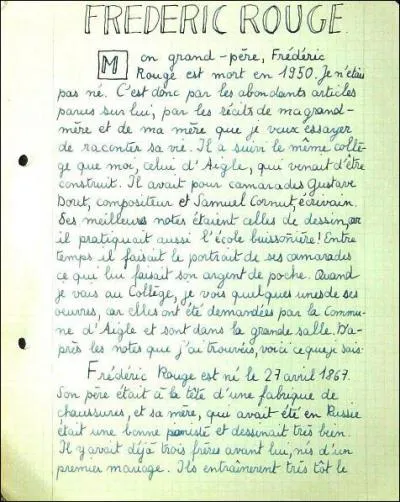 FREDERIC ROUGE
Mon grand-père, Frédéric
Rouge est mort en 1950. Je n'étais
pas né. C'est donc par les abondants articles
parus sur lui, par les récits de ma grand-
mère et de ma mère que je veux essayer
de raconter sa vie. Il a suivi le même collè-
ge que moi, celui d'Aigle, qui venait d'être
construit. Il avait pour camarades Gustave
Doret, compositeur et Samuel Cornut, écrivain.
Ses meilleures notes étaient celles de dessin, car
il pratiquait aussi l'école buissonière! Entre
temps il faisait le portrait de ses camarades
ce qui lui faisait son argent de poche. Quand
je vais au Collège, je vois quelques unes de ses
oeuvres, car elles ont été demandées par la Commu-
ne d'Aigle et sont dans la grande salle. D'a-
près les notes que j'ai trouvées, voici ce que je sais:
Frédéric Rouge est né le 27 avril 1867.
Son père était à la tête d'une fabrique de
chaussures, et sa mère, qui avait été en Russie
était une bonne pianiste et dessinait très bien.
Il y avait déjà trois frères avant lui, nés d'un
premier mariage. Ils entraînèrent très tôt le